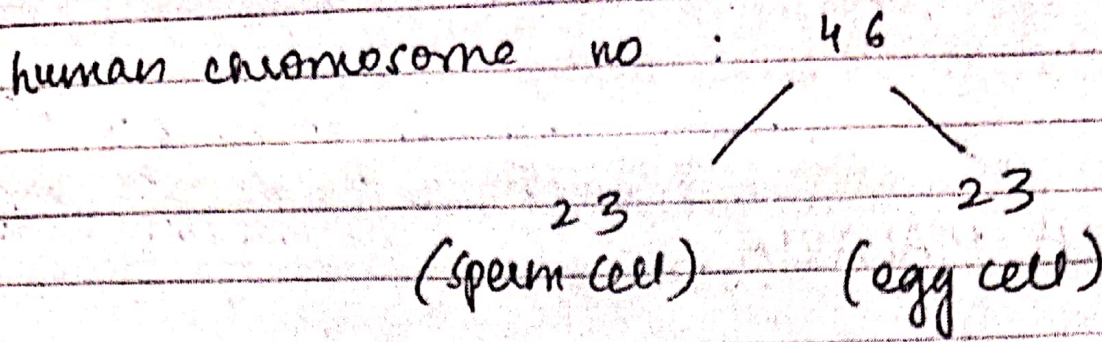 human chromosome no : 46
23 23
(sperm cell) (egg cell)